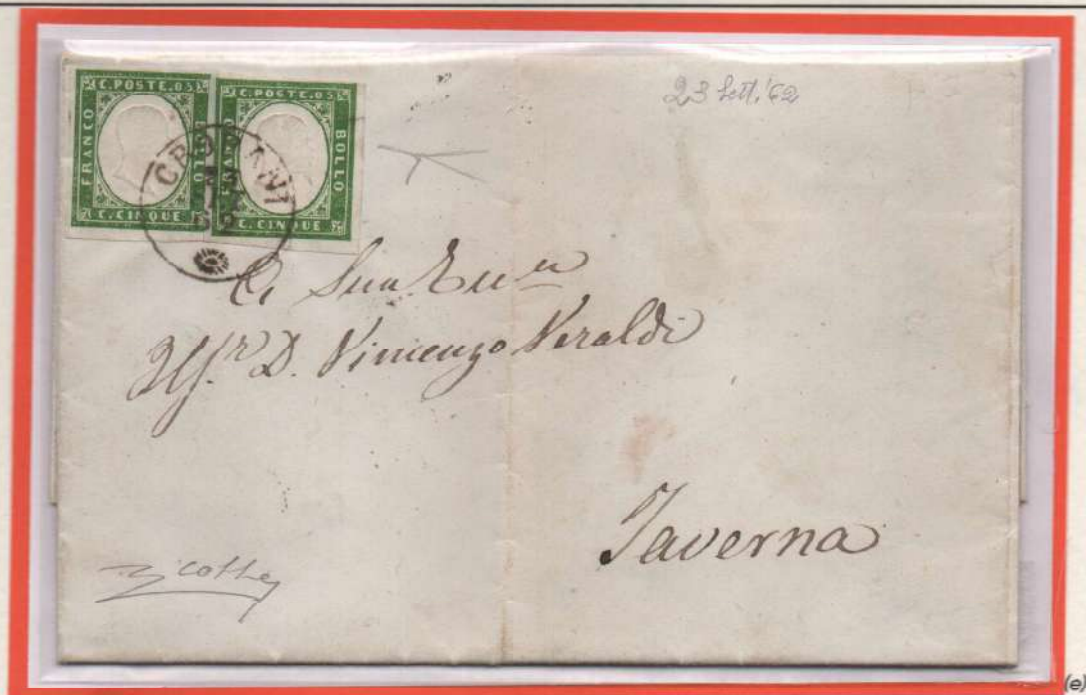 C. POSTE. 05
FRANCO
BOLLO
C. CINQUE
C. POSTE. 05
FRANCO
BOLLO
C. CINQUE
CROPANI
23 Sett. '62
A Sua
D. Vincenzo Veraldi
Taverna
(e)